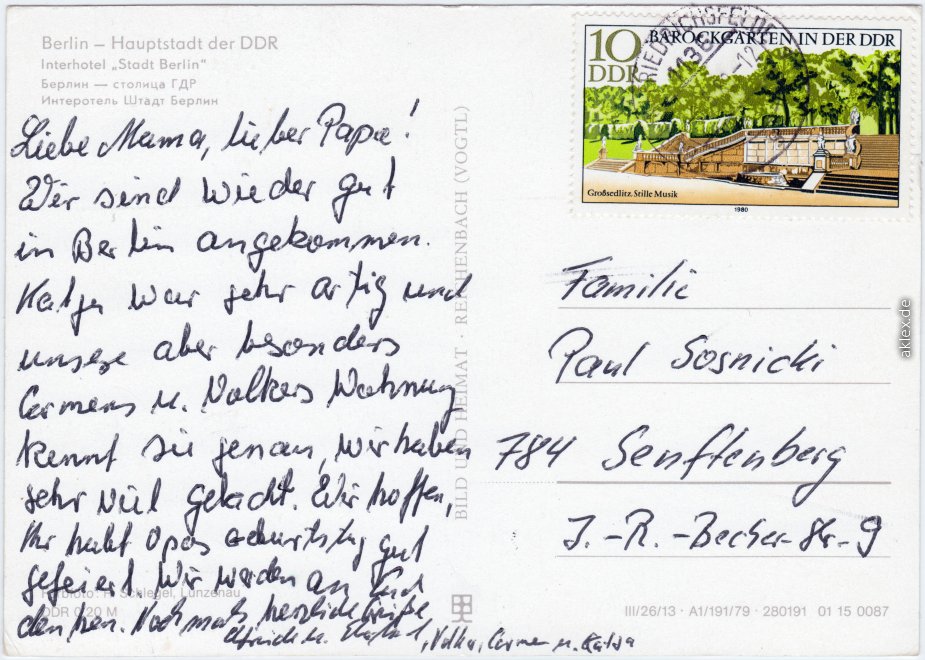 Berlin – Hauptstadt der DDR
Interhotel „Stadt Berlin“
Берлин — столица ГДР
Интеротель Штадт Берлин
Liebe Mama, lieber Papa!
Wir sind wieder gut
in Berlin angekommen.
Katja war sehr artig und
unsere aber besonders
Carmens u. Volkers Wohnung
kennt sie genau, wir haben
sehr viel gelacht. Wir hoffen,
Ihr habt Opas Geburtstag gut
gefeiert. Wir werden an Euch
denken. Nochmals herzliche Grüße
u. , Volker, Carmen u. Katja
Farbfoto: Schlegel, Lunzenau
DDR 0,20 M
BILD UND HEIMAT · REICHENBACH (VOGTL)
10
DDR
BAROCKGÄRTEN IN DER DDR
Großsedlitz, Stille Musik
1980
FRIEDRICHSFELDE
1136
Familie
Paul Sosnicki
784 Senftenberg
J.-R.-Becher-Str. 9
III/26/13 · A1/191/79 · 280191 01 15 0087
aklex.de